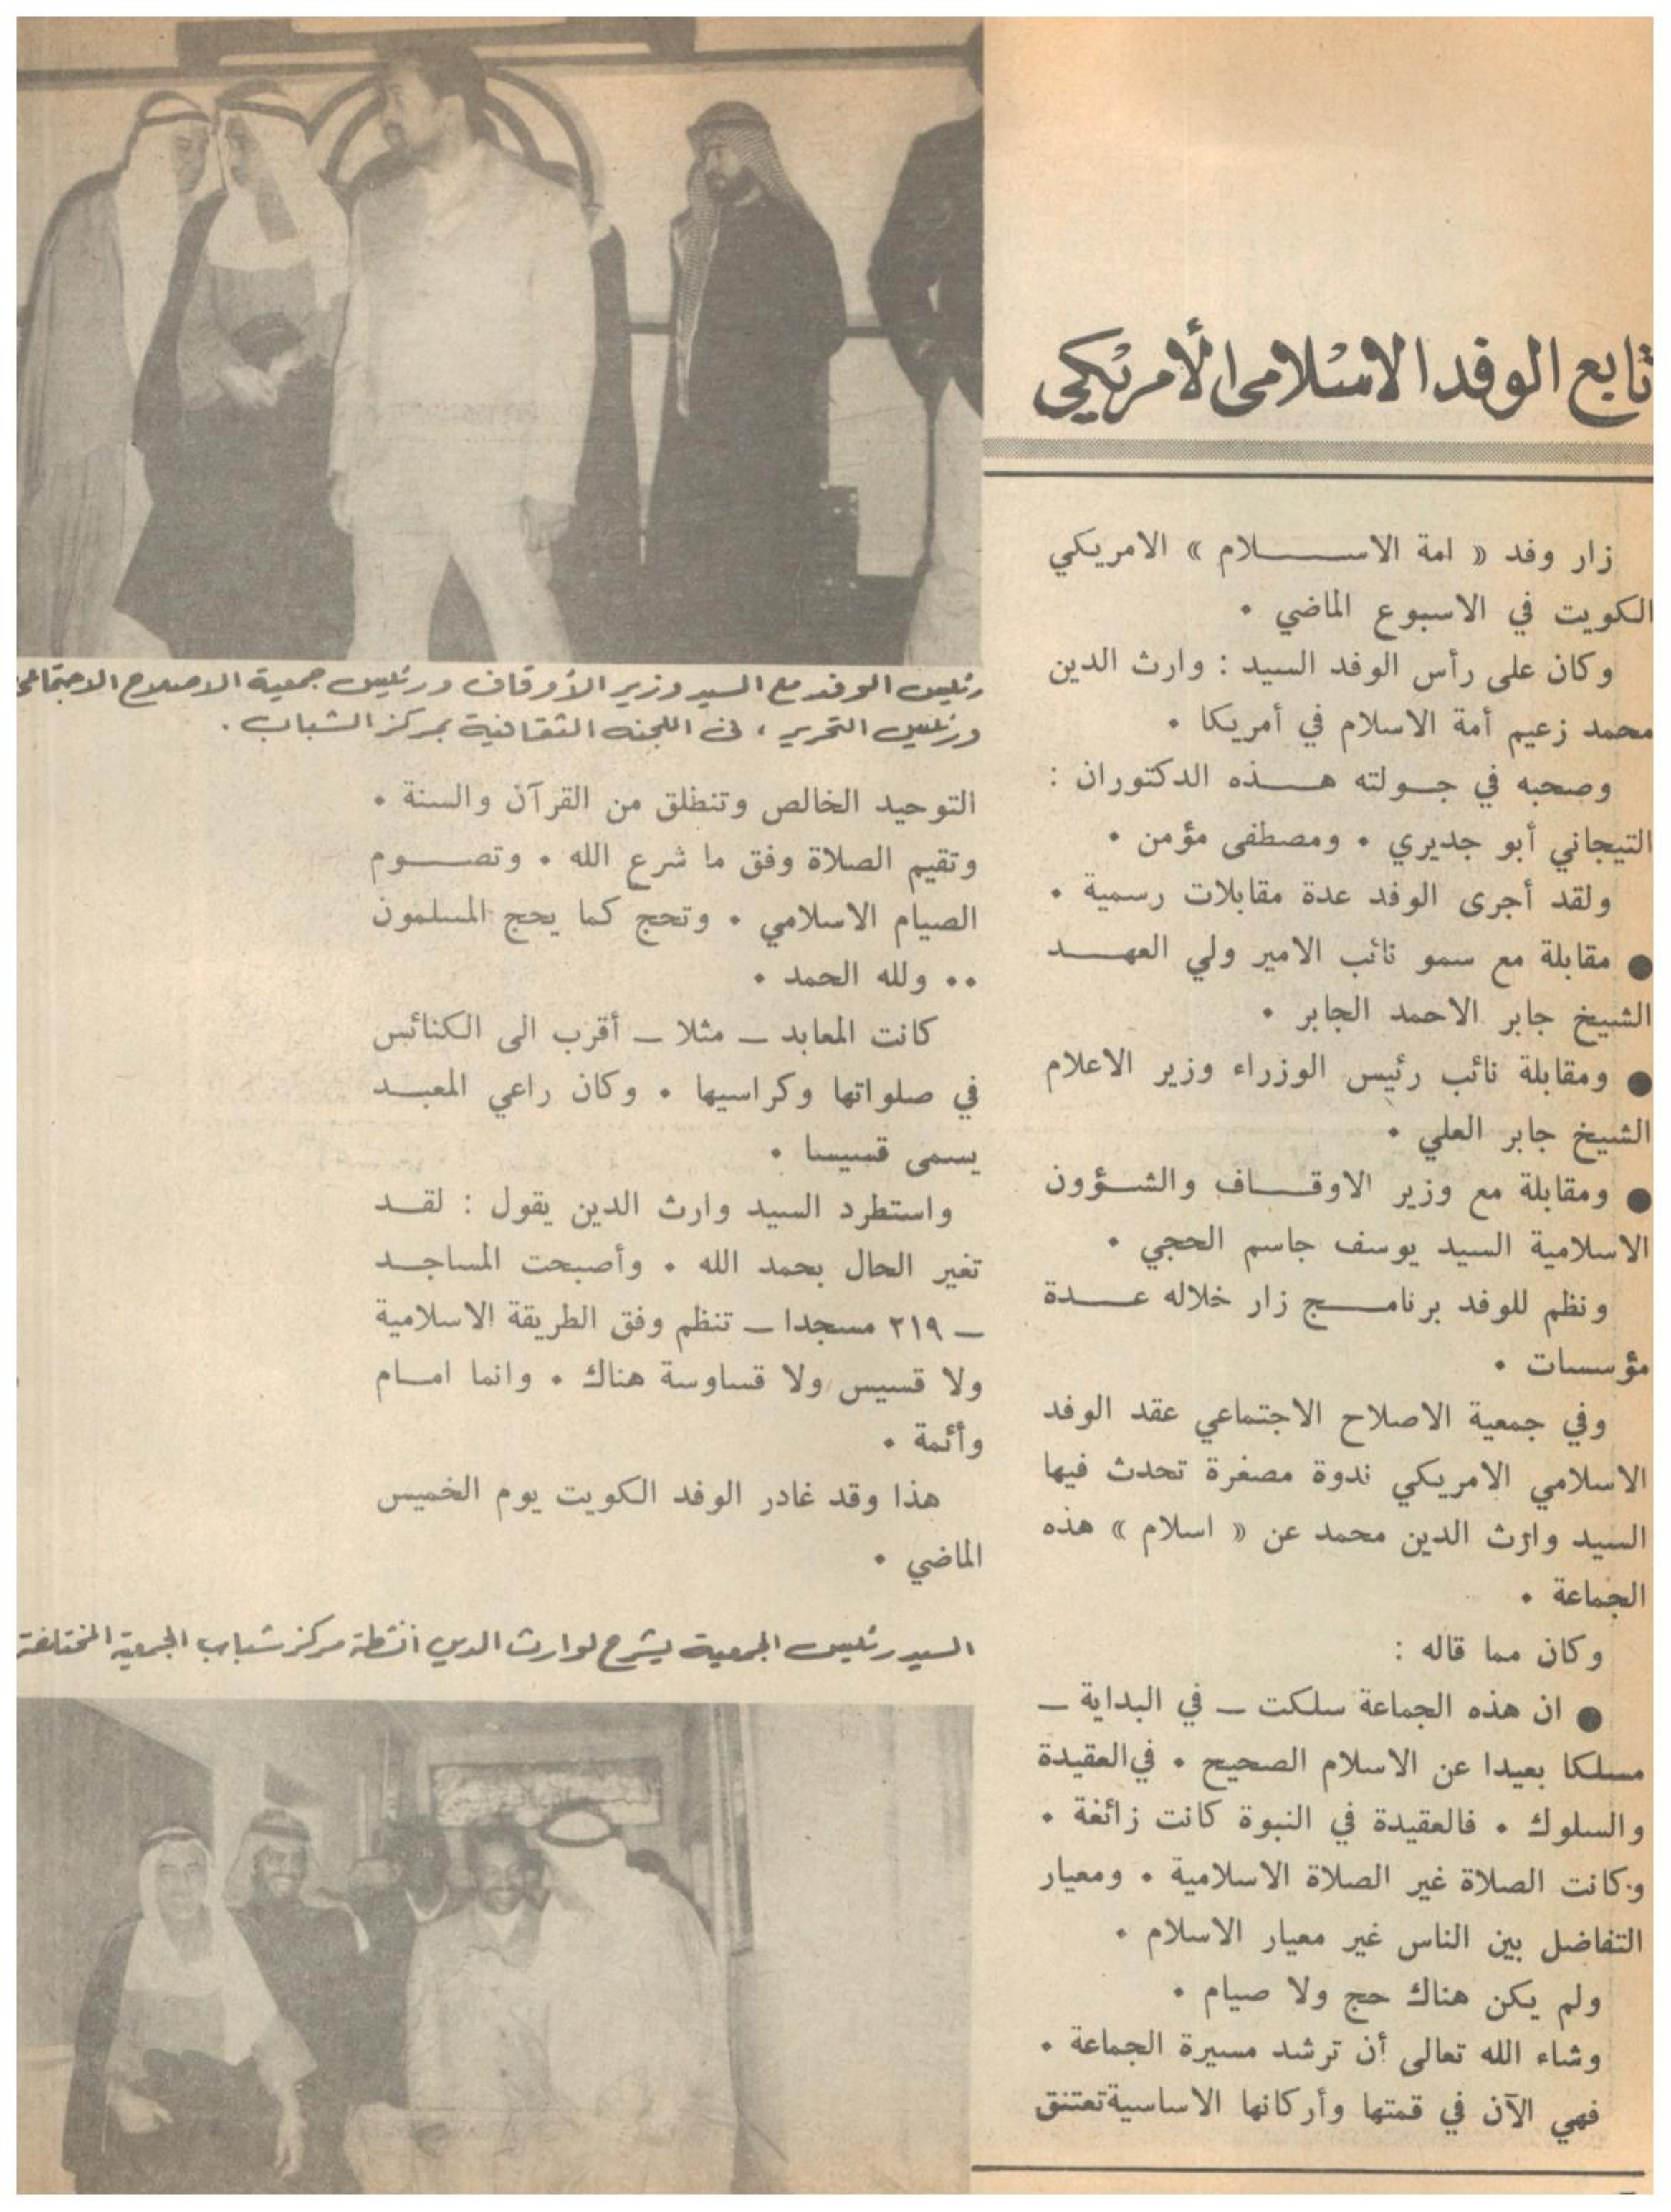 تابع الوفد الاسلامى الأمريكي
زار وفد « امة الاســـــلام » الامريكي
الكويت في الاسبوع الماضي •
وكان على رأس الوفد السيد : وارث الدين
محمد زعيم أمة الاسلام في أمريكا •
وصحبه في جــولته هــــذه الدكتوران :
التيجاني أبو جديري • ومصطفى مؤمن •
ولقد أجرى الوفد عدة مقابلات رسمية •
● مقابلة مع سمو نائب الامير ولي العهــــد
الشيخ جابر الاحمد الجابر •
● ومقابلة نائب رئيس الوزراء وزير الاعلام
الشيخ جابر العلي •
● ومقابلة مع وزير الاوقـــاف والشــؤون
الاسلامية السيد يوسف جاسم الحجي •
ونظم للوفد برنامــــج زار خلاله عــــدة
مؤسسات •
وفي جمعية الاصلاح الاجتماعي عقد الوفد
الاسلامي الامريكي ندوة مصغرة تحدث فيها
السيد وارث الدين محمد عن « اسلام » هذه
الجماعة •
وكان مما قاله :
● ان هذه الجماعة سلكت ــ في البداية ــ
مسلكا بعيدا عن الاسلام الصحيح • في العقيدة
والسلوك • فالعقيدة في النبوة كانت زائغة •
وكانت الصلاة غير الصلاة الاسلامية • ومعيار
التفاضل بين الناس غير معيار الاسلام •
ولم يكن هناك حج ولا صيام •
وشاء الله تعالى أن ترشد مسيرة الجماعة •
فهي الآن في قمتها وأركانها الاساسية تعتنق
رئيس الوفد مع السيد وزير الأوقاف ورئيس جمعية الاصلاح الاجتماعي
ورئيس التحرير ، في اللجنه الثقافية بمركز الشباب .
التوحيد الخالص وتنطلق من القرآن والسنة •
وتقيم الصلاة وفق ما شرع الله • وتصـــوم
الصيام الاسلامي • وتحج كما يحج المسلمون
•• ولله الحمد •
كانت المعابد ــ مثلا ــ أقرب الى الكنائس
في صلواتها وكراسيها • وكان راعي المعبــد
يسمى قسيسا •
واستطرد السيد وارث الدين يقول : لقــد
تغير الحال بحمد الله • وأصبحت المساجــد
ــ ٢١٩ مسجدا ــ تنظم وفق الطريقة الاسلامية
ولا قسيس ولا قساوسة هناك • وانما امــام
وأئمة •
هذا وقد غادر الوفد الكويت يوم الخميس
الماضي •
السيد رئيس الجمعية يشرح لوارث الدين انشطة مركز شباب الجمعية المختلفة